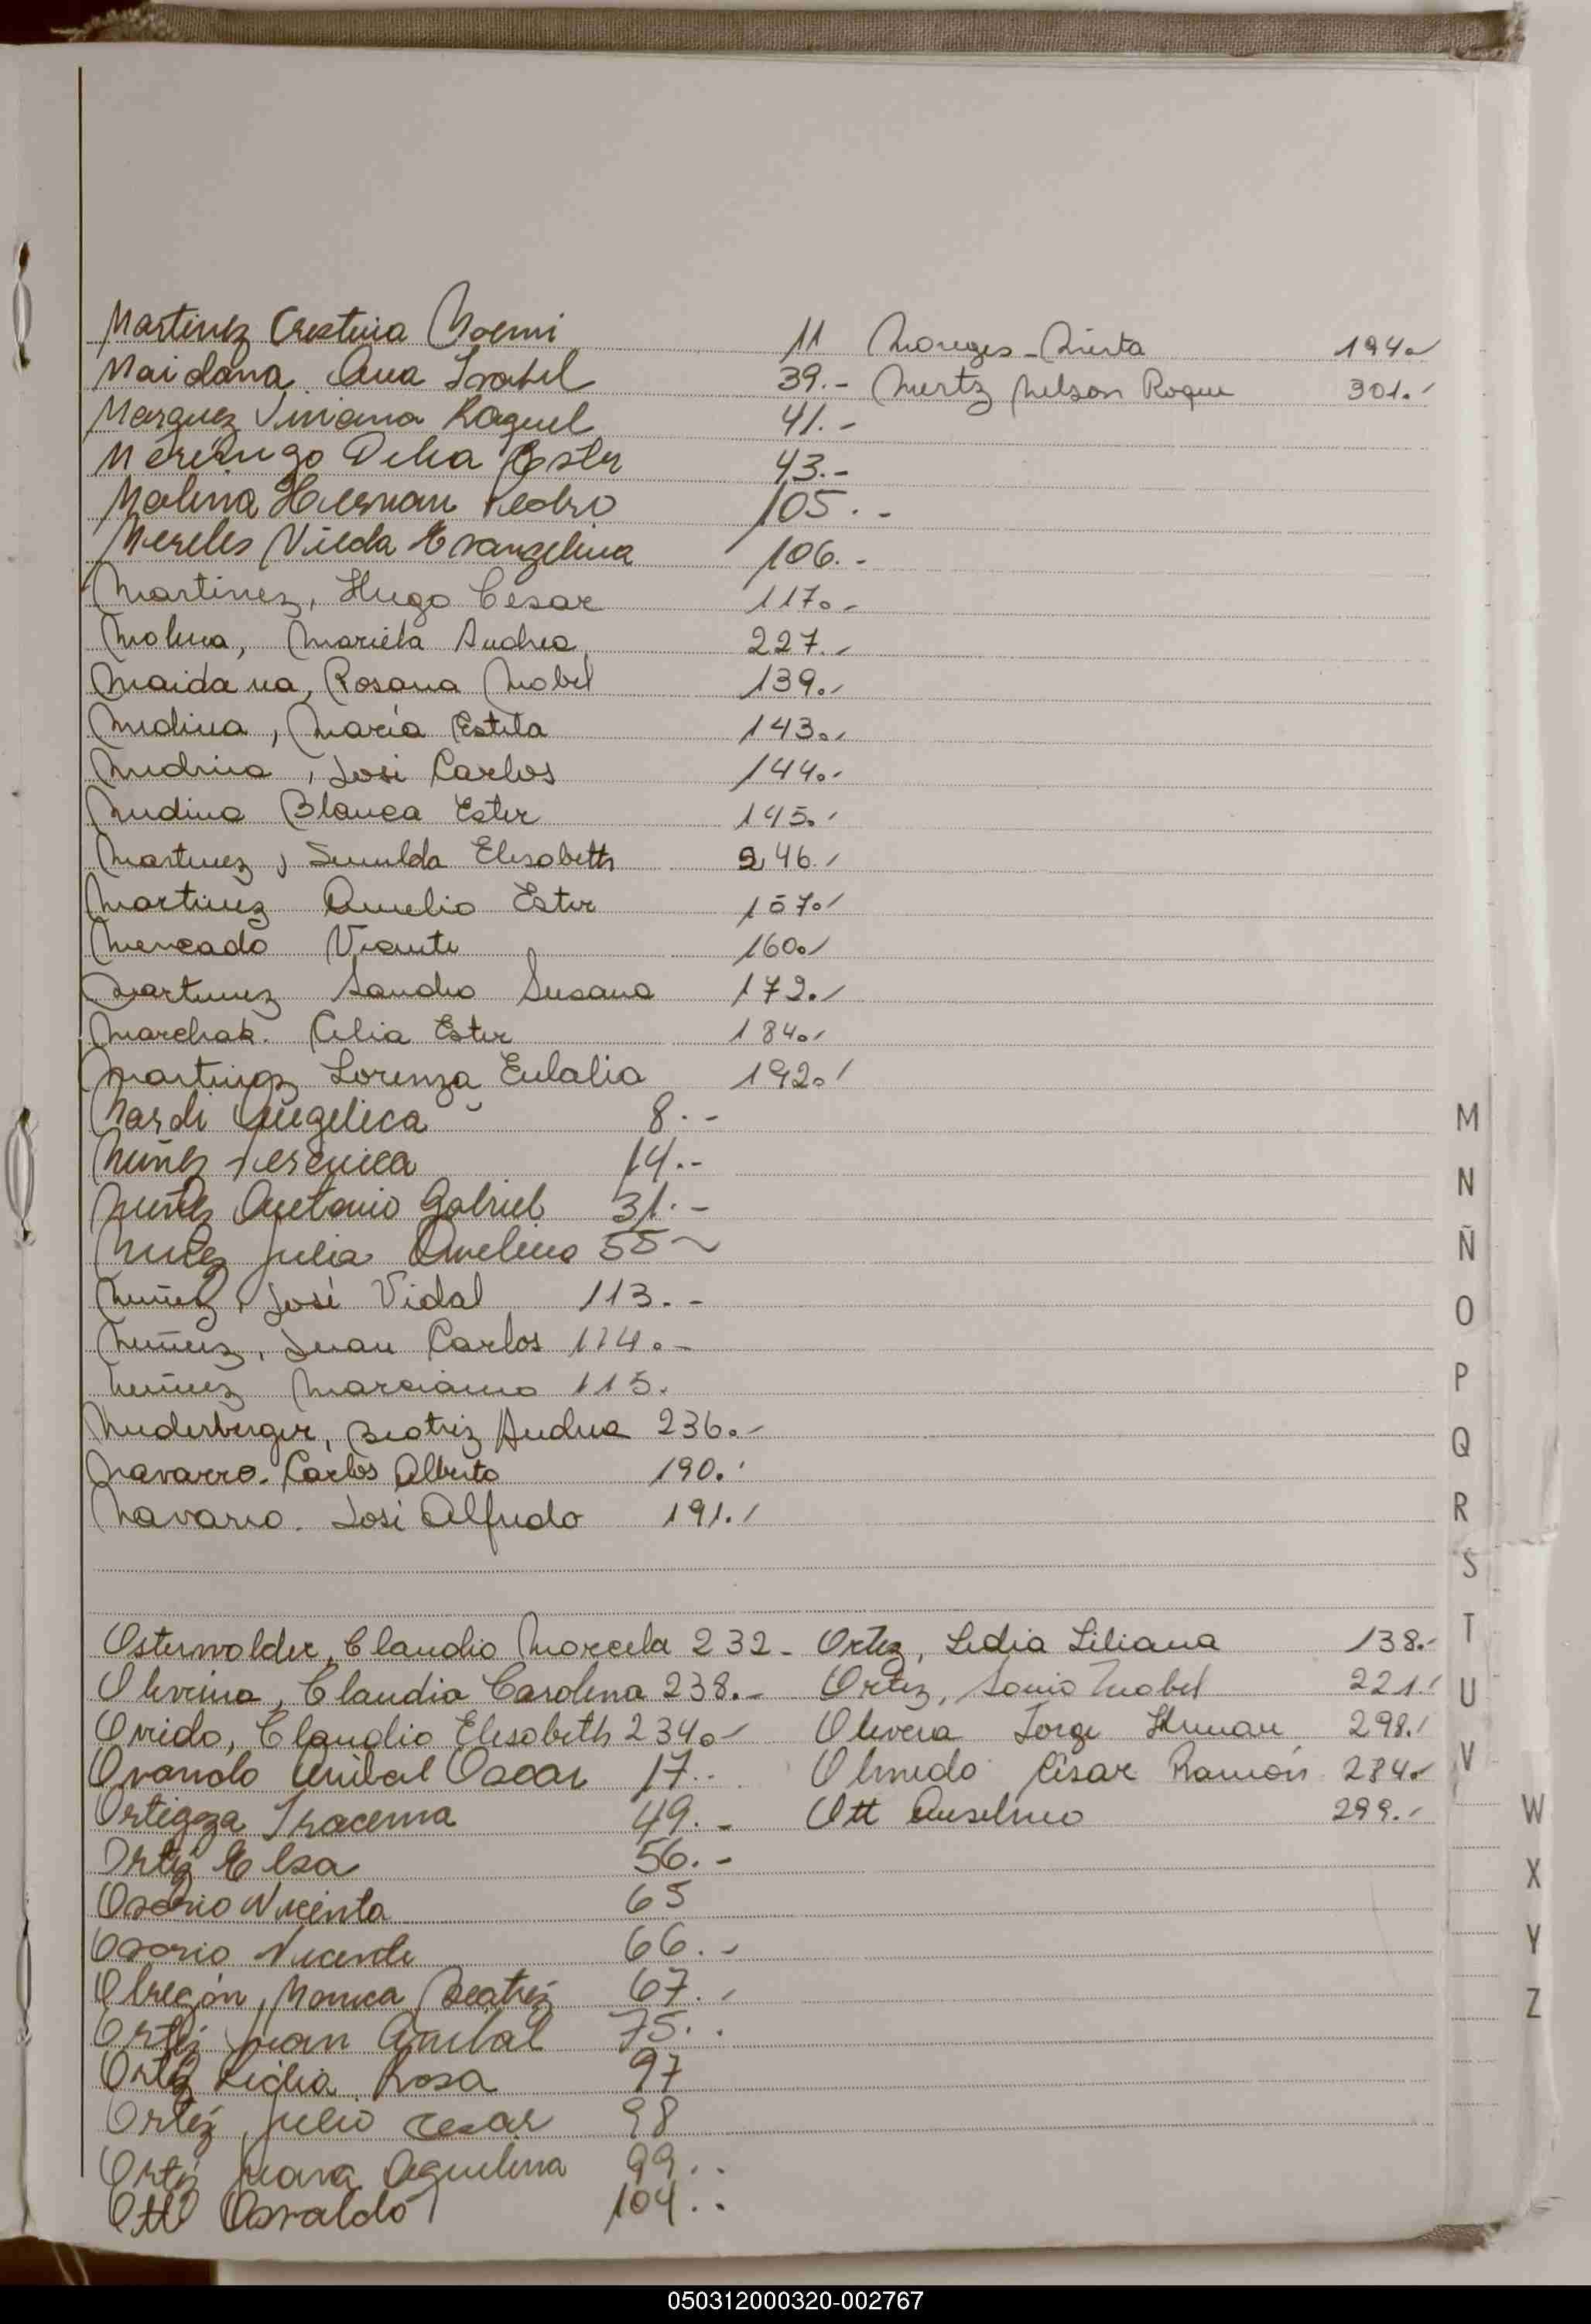 Martinez Cristina Noemi 11
Maidana Ana Isabel 39.-
Marquez Viviana Raquel 41.-
Merengo Delia Ester 43.-
Molina Hernan Pedro 105.-
Mereles Nieda Evangelina 106.-
Martinez, Hugo Cesar 117.-
Molina, Mariela Andrea 227.-
Maidana, Rosana Mabel 139.-
Medina, María Estela 143.-
Medina, José Carlos 144.-
Medina Blanca Ester 145.-
Martinez, Elisabeth 246.-
Martinez Amelia Ester 157.-
Mercado Vicente 160.-
Martinez Sandra Susana 172.-
Marchak. Celia Ester 184.-
Martinez Lorenza Eulalia 192.-
Moreyes - Mirta 194.-
Mertz Nelson Roque 301.-
Nardi Angelica 8.-
Nuñez Veronica 14.-
Nuñez Antonio Gabriel 31.-
Nuñez Julia Avelina 55-
Nuñez, José Vidal 113.-
Nuñez, Juan Carlos 114.-
Nuñez Marciano 115.
Niederberger, Beatriz Andrea 236.-
Navarro. Carlos Alberto 190.-
Navarro. José Alfredo 191.-
Osterwalder, Claudia Marcela 232-
Oliveira, Claudia Carolina 238.-
Oviedo, Claudia Elisabeth 234.-
Ovando Anibal Oscar 17..
Ortigoza Iracema 49.-
Ortiz Elsa 56.-
Osorio Vicenta 65
Osorio Vicente 66.-
Obregón, Monica Beatriz 67.-
Ortiz Juan Anibal 75..
Ortiz Ligia Rosa 97
Ortiz, Julio Cesar 98
Ortiz Juana Aquilina 99..
Ott Osvaldo 104..
Ortiz, Lidia Liliana 138.-
Ortiz, Sonia Mabel 221.-
Olivera Jorge Hernan 298.-
Olmedo César Ramón 284.-
Ott Anselmo 299.-
M
N
Ñ
O
P
Q
R
S
T
U
V
W
X
Y
Z
050312000320-002767